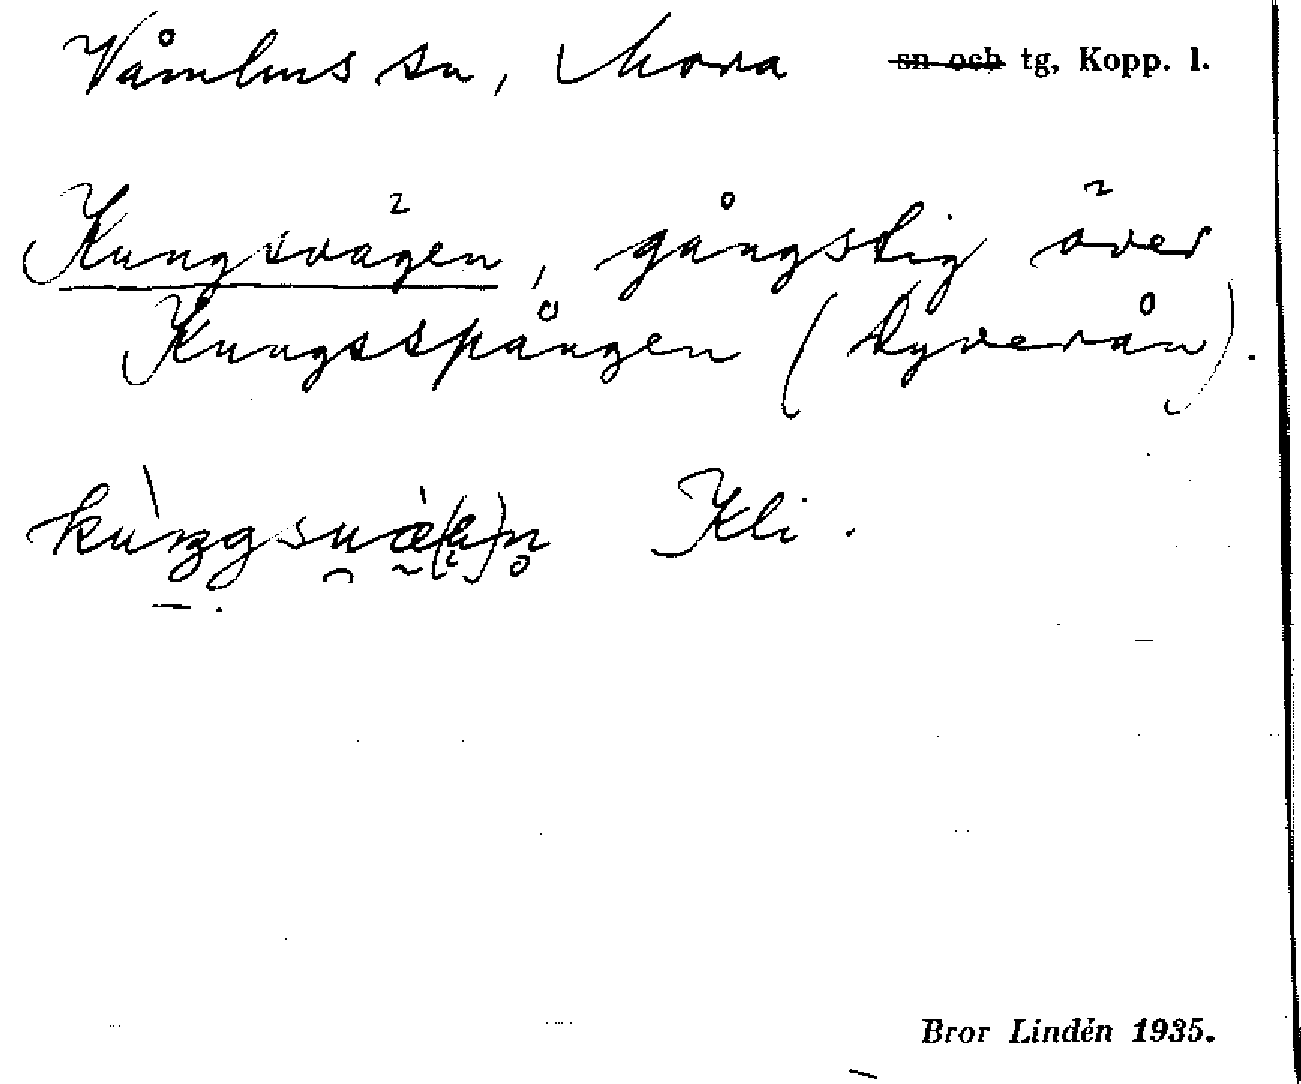 Våmhus sn, Mora sn och tg, Kopp. l.
Kungsvägen, gångstig över
Kungsspången (Dyverån).
Kli.
Bror Lindén 1935.